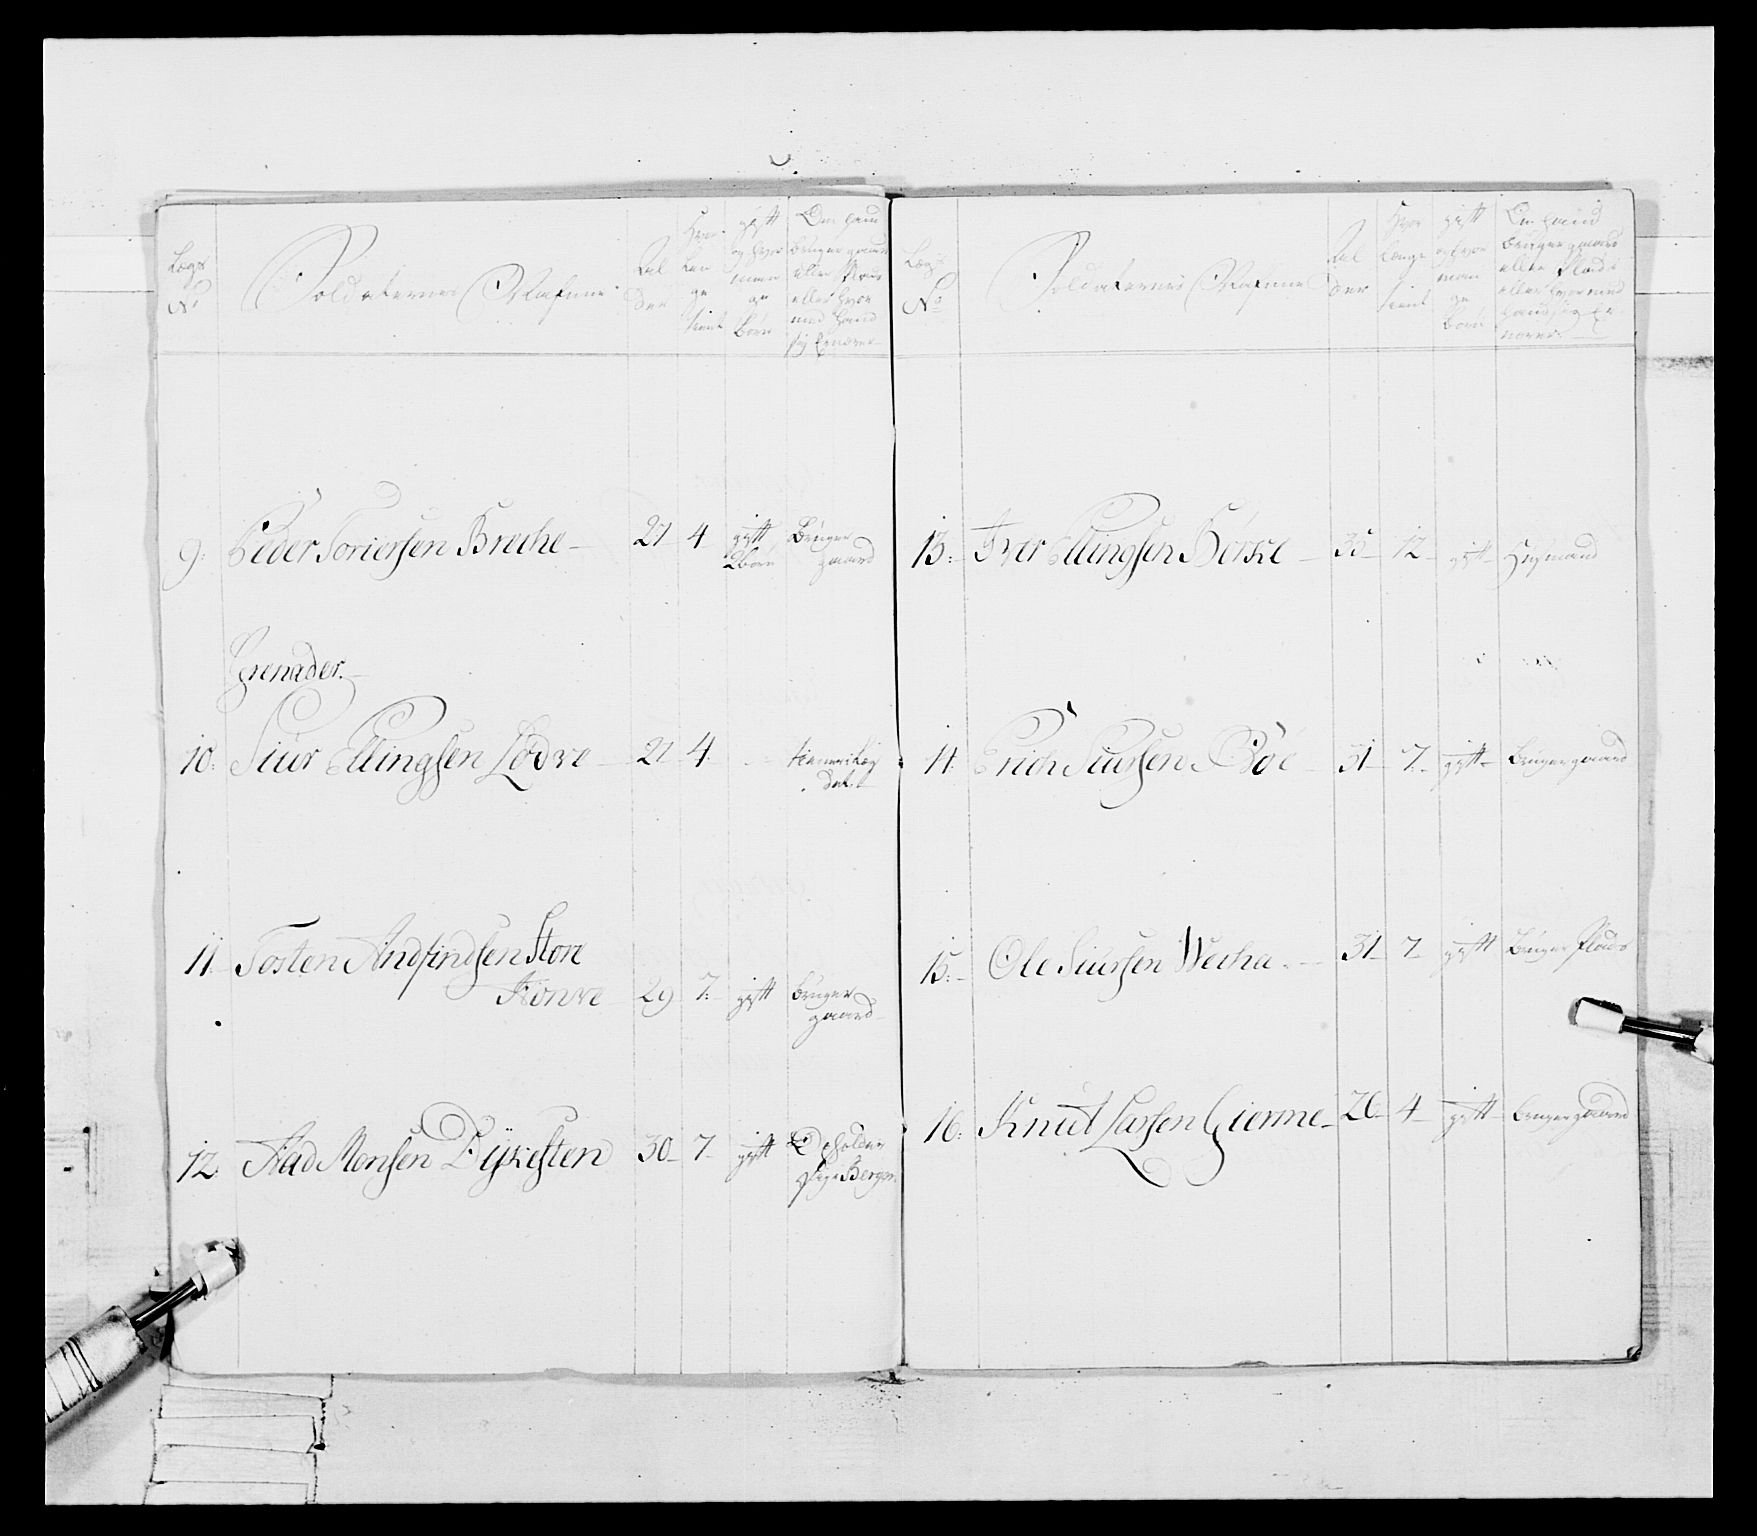 Lægs
No
Soldaternes Nafne
Al
der
Hvor
len
ge
tient
gift
og hvor
man
ge
Børn
Om hand
bruger gaard
eller Plads
eller hvor
med hand
sig Ernærer
9. Peder Torgersen 27 4 gift Bruger
2 børn gaard
Grenader.
10. Siur Ellingsen Lødve 21 4
11. Tosten Andfindsen Store
29 7. gift bruger
gaard
12. Aad Monsen Dykesten 30 7 gift Opholder
sig i Bergen
Lægs
No
Soldaternes Nafne
Al
der
Hvor
længe
tient
gift
og hvor
man
ge
Børn
Om hand
bruger gaard
eller Plads
eller hvor med
hand sig Er-
nærer
13. Iver Ellingsen 35 12 gift Husmand
14. Erich Siursen Bøe 31 7 gift bruger gaard
15. Ole Siursen Wecha 31 7 gift Bruger Plads
16. Knud Larsen Gierme 26 4 gift bruger gaard